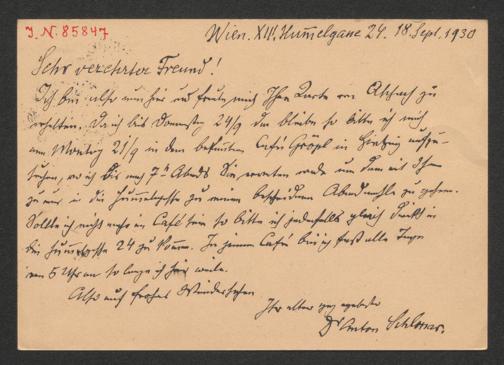 J. N. 85847
Wien. XIII. Hummelgasse 24. 18. Sept. 1930
Sehr verehrter Freund!
Ich bin also nun hier und freute mich Ihre Karte von zu
erhalten. Da ich bis Donnerstag 24/9 bleibe so bitte ich mich
am Montag 21/9 in dem bekannten Café Gröpl in Hietzing aufzu-
suchen, wo ich bis nach 7 h Abends Sie erwarten werde um dann mit Ihnen
zu mir in die Hummelgasse zu einem bescheidenen Abendmahle zu gehen.
Sollte ich nicht mehr im Café sein so bitte ich jedenfalls gleich direkt in
die Hummelgasse 24 zu kommen. In jenem Café bin ich fast alle Tage
von 5 Uhr an so lange ich hier weile.
Also auf frohes Wiedersehen
Ihr alter ganz ergebener
Dr Anton Schlossar.